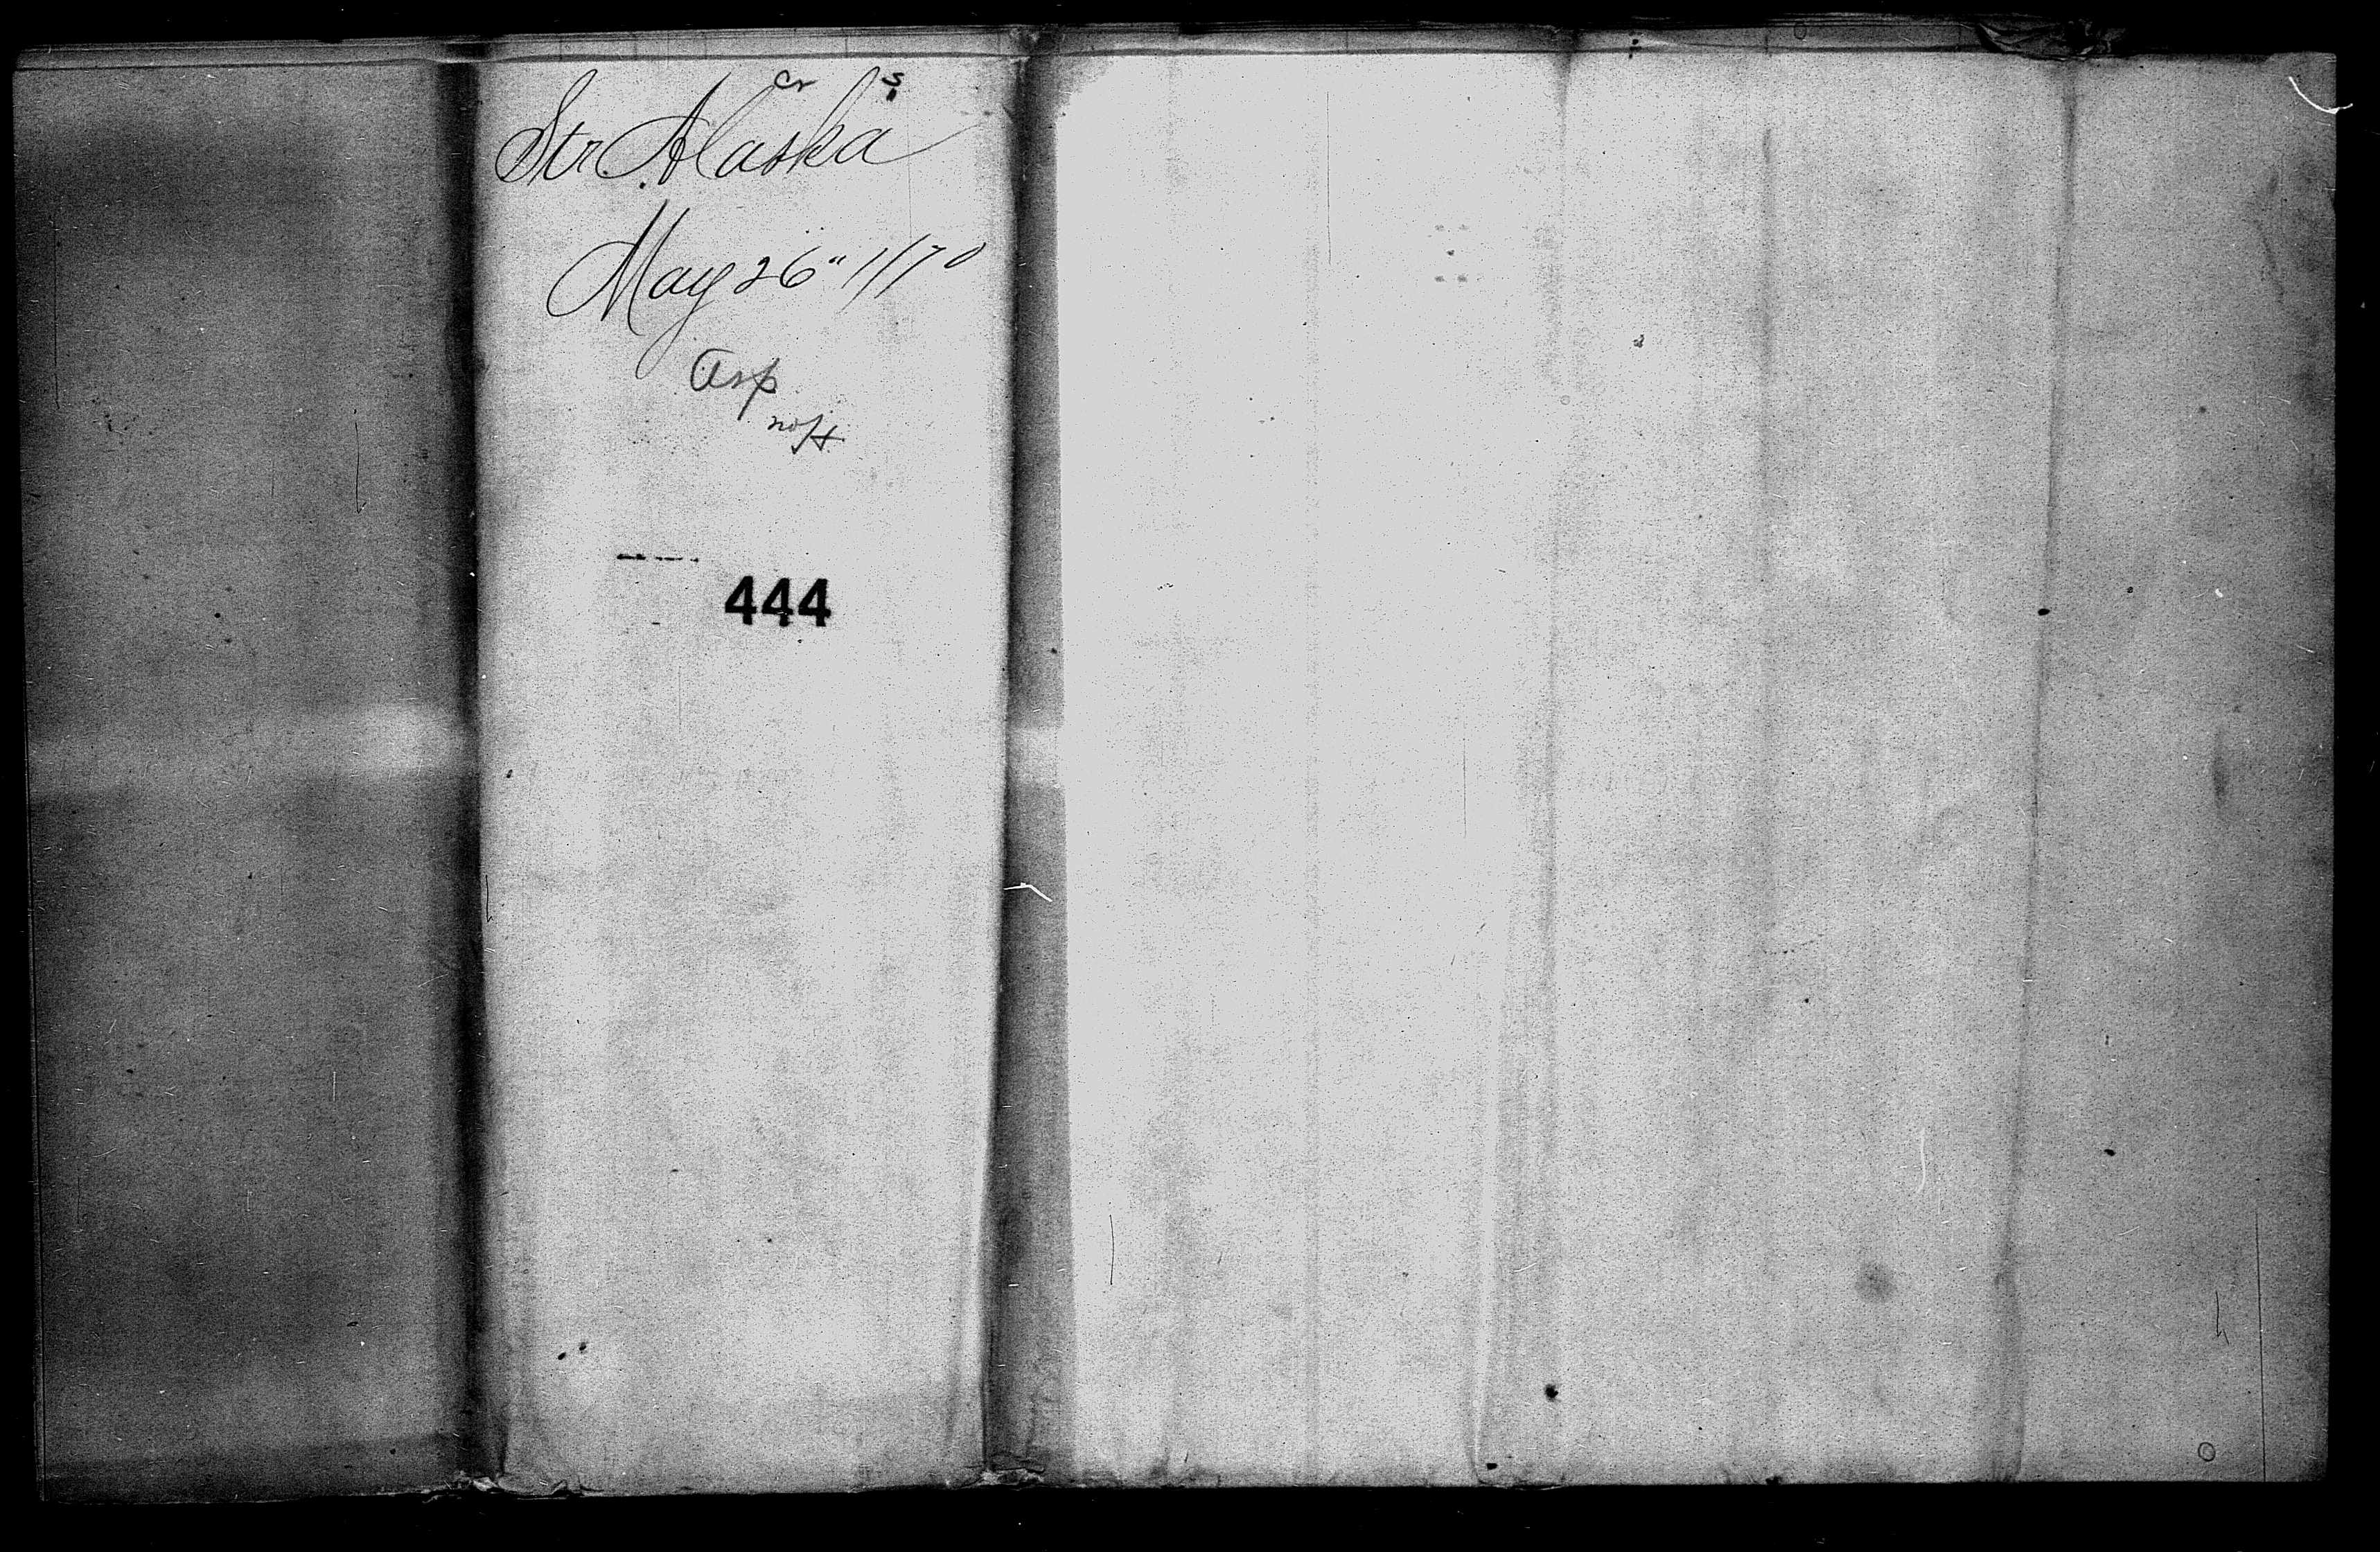 cr s
Str. Alaska
May 26" 1870
Asp
444